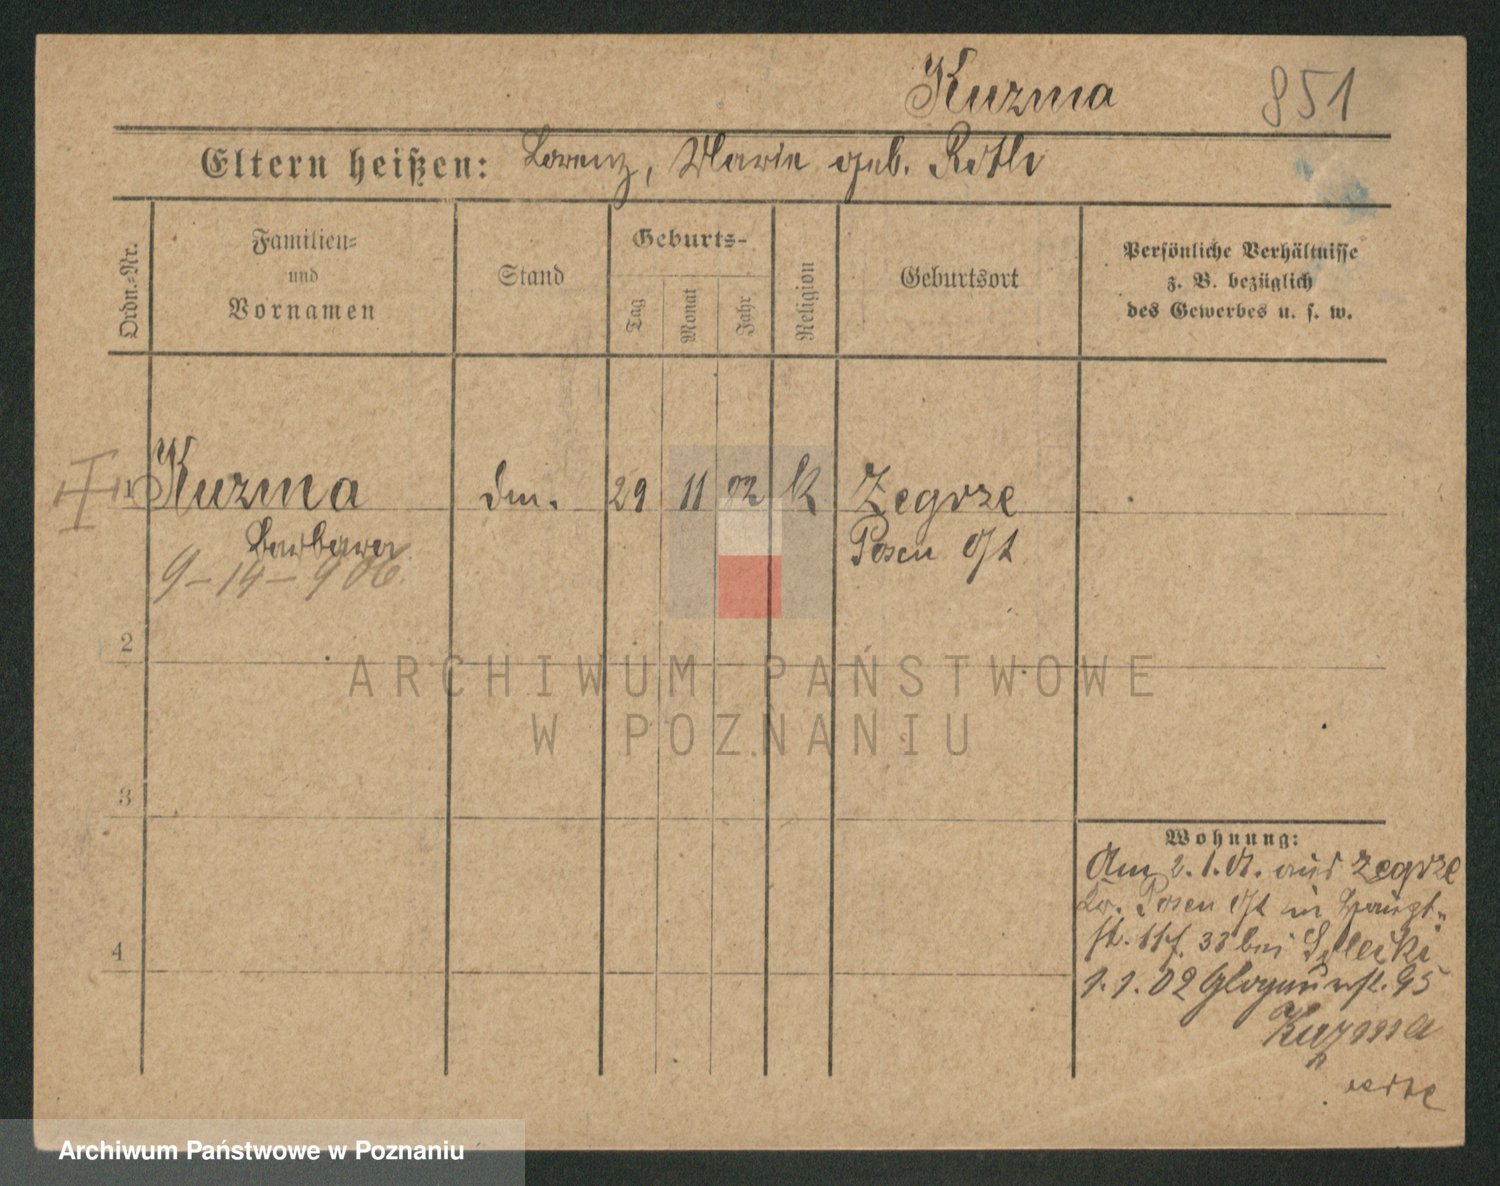 Kuzma 851
Eltern heißen: Lorenz, Marie geb. Roth
Ordn.-Nr.
Familien-
und
Vornamen
Stand
Geburts-
Tag
Monat
Jahr
Religion
Geburtsort
Persönliche Verhältnisse
z. B. bezüglich
des Gewerbes u. s. w.
1 Kuzma 29 11 02 K Zegrze
Barbara Posen Ost
9-14-906.
2
3
4
Wohnung:
Am 2. 1. 01. aus Zegrze
Posen Ost in Haupt-
st. 33 bei
1. 1. 02 Glogauerst. 95
Kuzma
ARCHIWUM PAŃSTWOWE
W POZNANIU
Archiwum Państwowe w Poznaniu